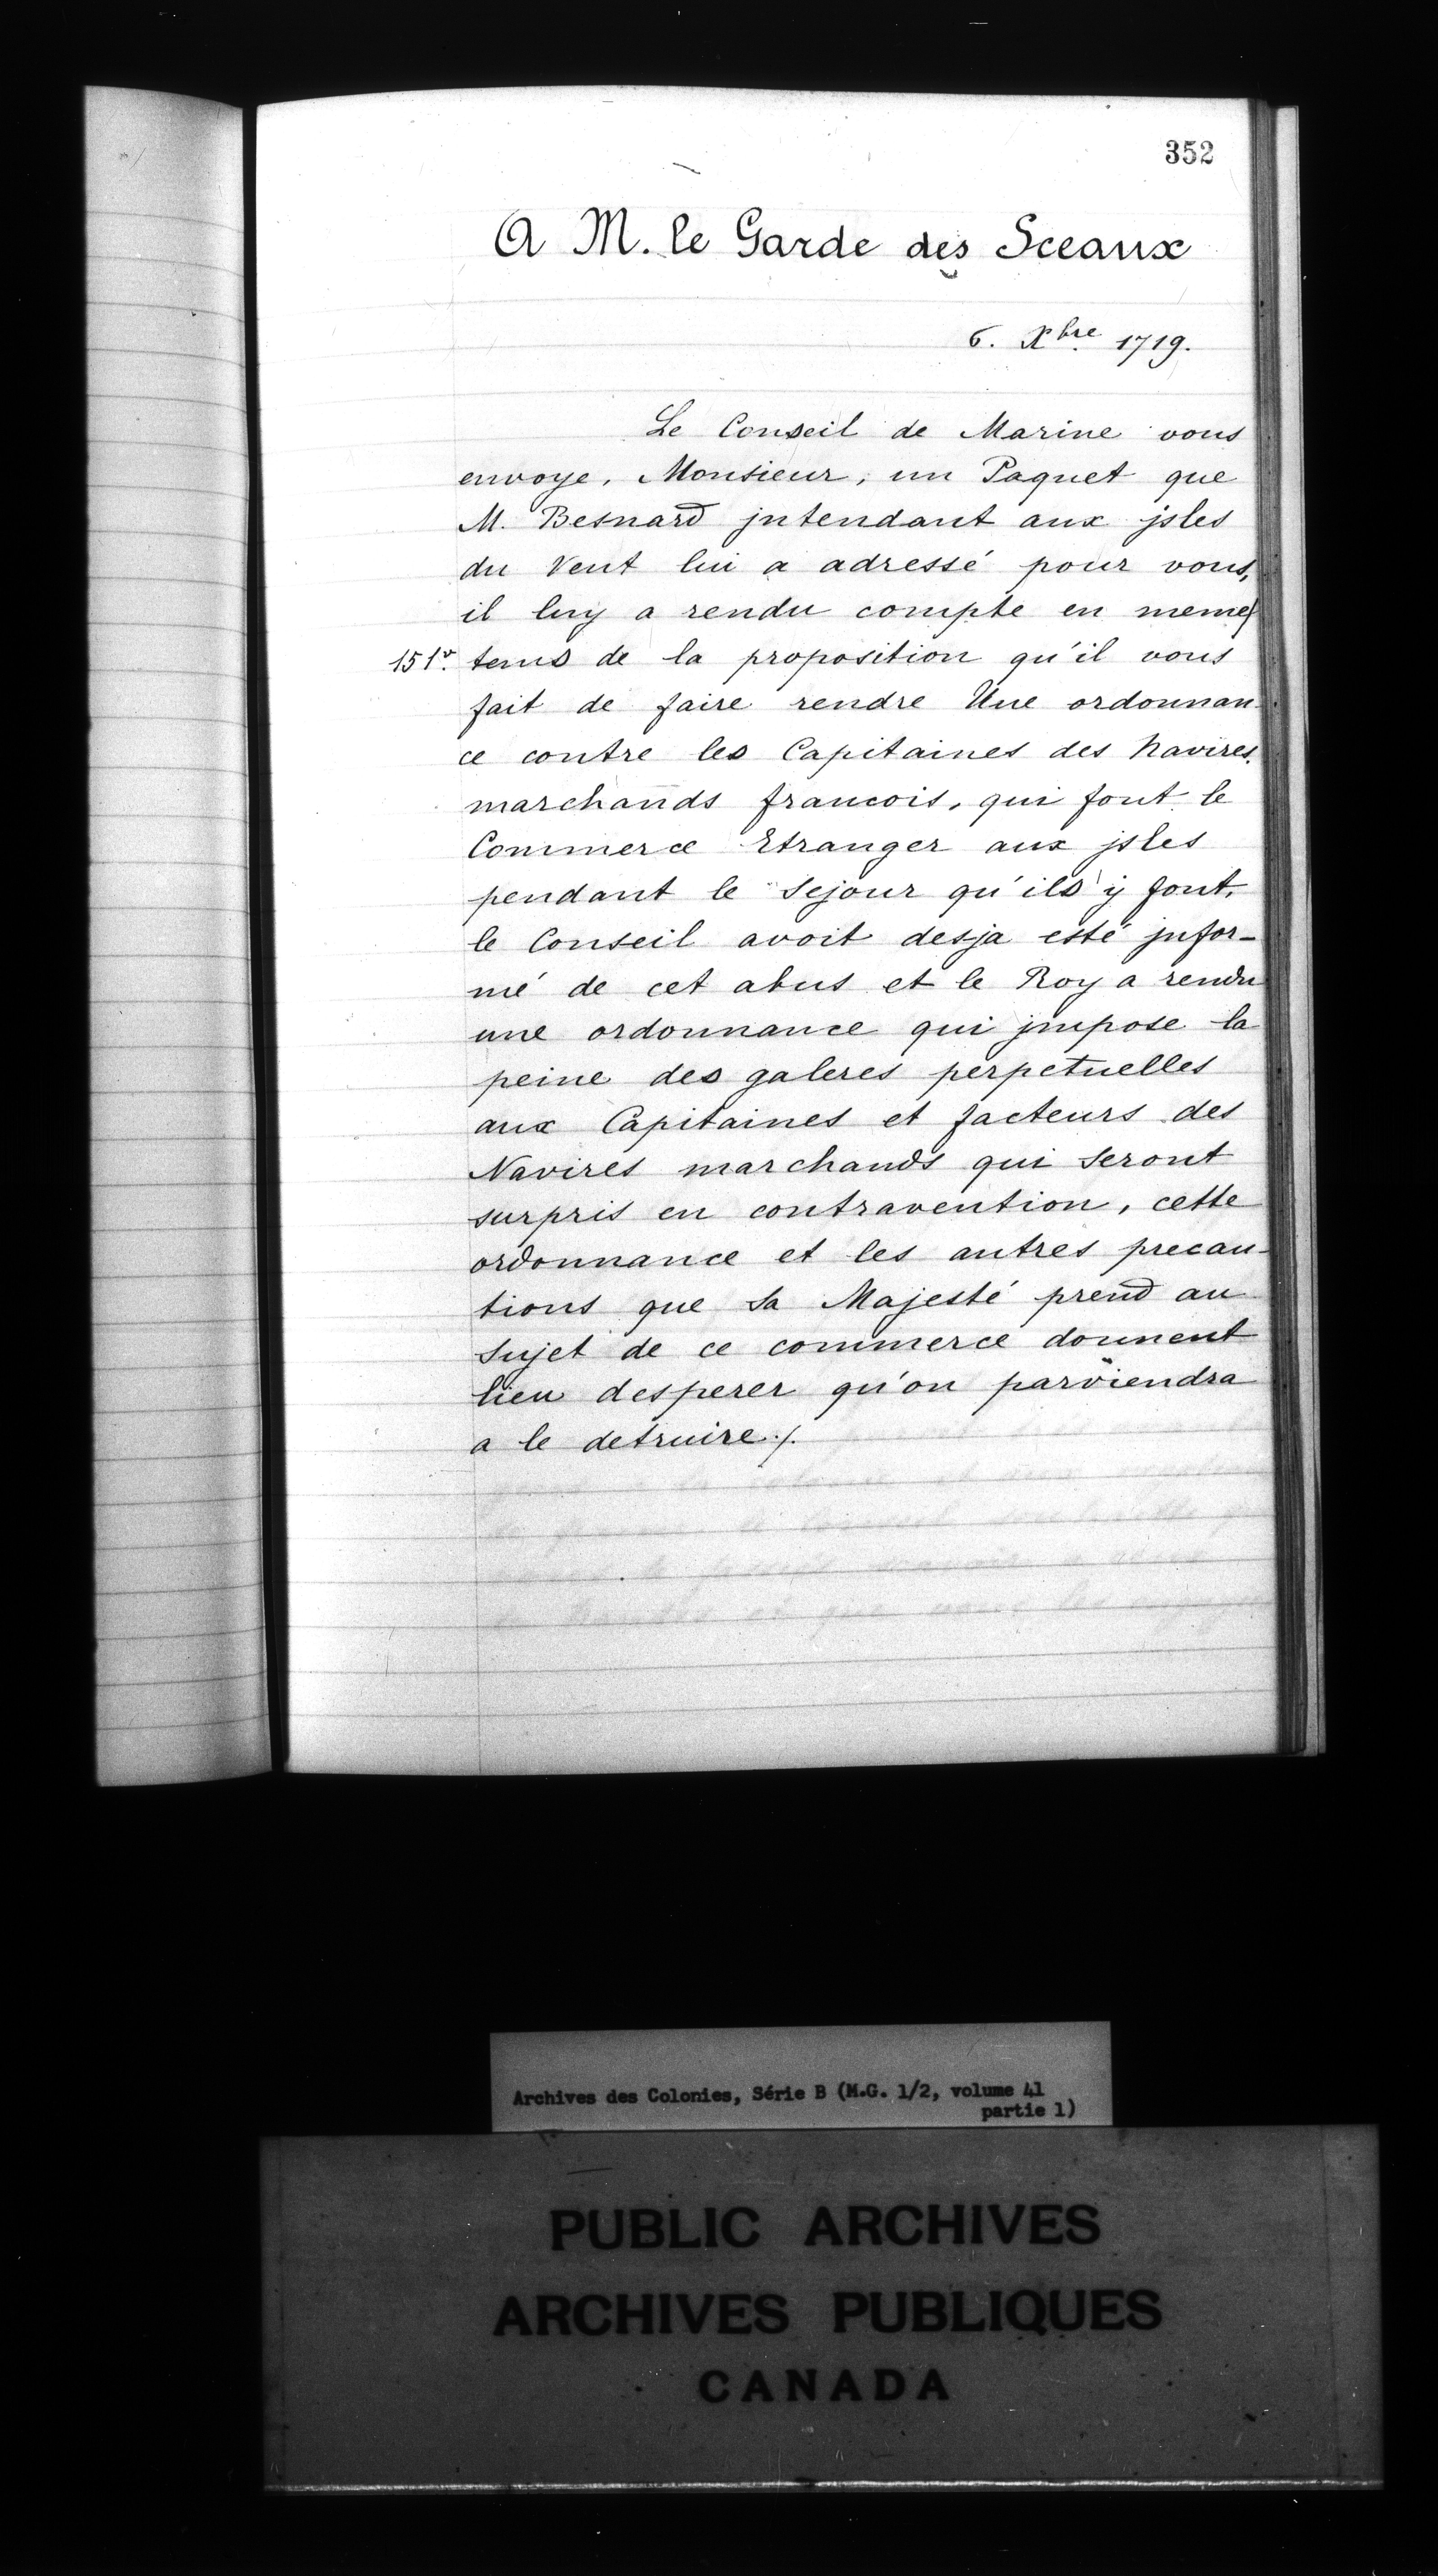 352
A M. le Garde des Sceaux
6. Xbre 1719.
Le Conseil de Marine vous
envoye, Monsieur, un Paquet que
M. Besnard jntendant aux jsles
du Vent lui a adressé pour vous,
il luy a rendu compte en meme
151v. tems de la proposition qu'il vous
fait de faire rendre Une ordonnan
ce contre les Capitaines des Navires
marchands francois, qui font le
Commerce Etranger aux jsles
pendant le Sejour qu'ils y font,
le Conseil avoit desja esté jnfor-
mé de cet abus et le Roy a rendu
une ordonnance qui jmpose la
peine des galeres perpetuelles
aux Capitaines et facteurs des
Navires marchands qui seront
surpris en contravention, cette
ordonnance et les autres precau-
tions que sa Majesté prend au
sujet de ce commerce donnent
lieu desperer qu'on parviendra
a le detruire./.
Archives des Colonies, Série B (M.G. 1/2, volume 41
partie 1)
PUBLIC ARCHIVES
ARCHIVES PUBLIQUES
CANADA